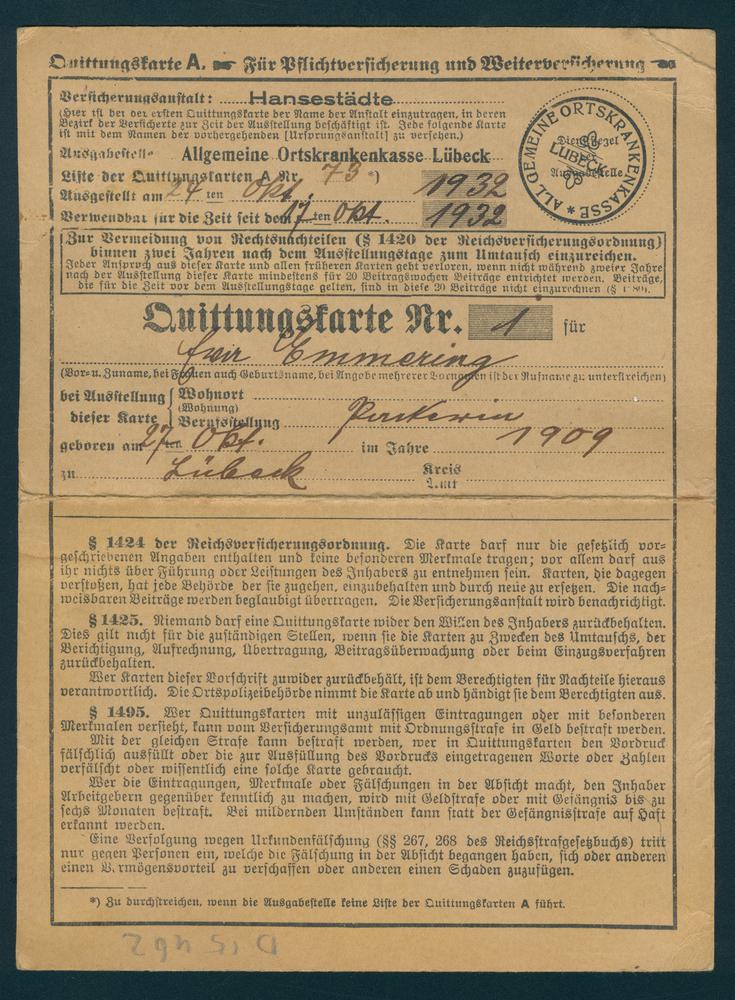 Quittungskarte A. Für Pflichtversicherung und Weiterversicherung
Versicherungsanstalt: Hansestädte
(Hier ist bei der ersten Quittungskarte der Name der Anstalt einzutragen, in deren
Bezirk der Versicherte zur Zeit der Ausstellung beschäftigt ist. Jede folgende Karte
ist mit dem Namen der vorhergehenden [Ursprungsanstalt] zu versehen.)
Ausgabestelle Allgemeine Ortskrankenkasse Lübeck
Liste der Quittungskarten A Nr. 73 *)
Ausgestellt am 24 ten Okt. 1932
Verwendbar für die Zeit seit dem 17 ten Okt. 1932
ALLGEMEINE ORTSKRANKENKASSE *
LÜBECK
Dienstsiegel
der
Ausgabestelle
Zur Vermeidung von Rechtsnachteilen (§ 1420 der Reichsversicherungsordnung)
binnen zwei Jahren nach dem Ausstellungstage zum Umtausch einzureichen.
Jeder Anspruch aus dieser Karte und allen früheren Karten geht verloren, wenn nicht während zweier Jahre
nach der Ausstellung dieser Karte mindestens für 20 Beitragswochen Beiträge entrichtet werden. Beiträge,
die für die Zeit vor dem Ausstellungstage gelten, sind in diese 20 Beiträge nicht einzurechnen
Quittungskarte Nr. 1 für
Emmering
(Vor- u. Zuname, bei Frauen auch Geburtsname, bei Angabe mehrerer Vornamen ist der Rufname zu unterstreichen)
bei Ausstellung dieser Karte
Wohnort
(Wohnung)
Berufsstellung
geboren am 27 ten Okt. im Jahre 1909
zu Lübeck Kreis
Amt
§ 1424 der Reichsversicherungsordnung. Die Karte darf nur die gesetzlich vor-
geschriebenen Angaben enthalten und keine besonderen Merkmale tragen; vor allem darf aus
ihr nichts über Führung oder Leistungen des Inhabers zu entnehmen sein. Karten, die dagegen
verstoßen, hat jede Behörde der sie zugehen, einzubehalten und durch neue zu ersetzen. Die nach-
weisbaren Beiträge werden beglaubigt übertragen. Die Versicherungsanstalt wird benachrichtigt.
§ 1425. Niemand darf eine Quittungskarte wider den Willen des Inhabers zurückbehalten.
Dies gilt nicht für die zuständigen Stellen, wenn sie die Karten zu Zwecken des Umtauschs, der
Berichtigung, Aufrechnung, Übertragung, Beitragsüberwachung oder beim Einzugsverfahren
zurückbehalten.
Wer Karten dieser Vorschrift zuwider zurückbehält, ist dem Berechtigten für Nachteile hieraus
verantwortlich. Die Ortspolizeibehörde nimmt die Karte ab und händigt sie dem Berechtigten aus.
§ 1495. Wer Quittungskarten mit unzulässigen Eintragungen oder mit besonderen
Merkmalen versieht, kann vom Versicherungsamt mit Ordnungsstrafe in Geld bestraft werden.
Mit der gleichen Strafe kann bestraft werden, wer in Quittungskarten den Vordruck
fälschlich ausfüllt oder die zur Ausfüllung des Vordrucks eingetragenen Worte oder Zahlen
verfälscht oder wissentlich eine solche Karte gebraucht.
Wer die Eintragungen, Merkmale oder Fälschungen in der Absicht macht, den Inhaber
Arbeitgebern gegenüber kenntlich zu machen, wird mit Geldstrafe oder mit Gefängnis bis zu
sechs Monaten bestraft. Bei mildernden Umständen kann statt der Gefängnisstrafe auf Haft
erkannt werden.
Eine Verfolgung wegen Urkundenfälschung (§§ 267, 268 des Reichsstrafgesetzbuchs) tritt
nur gegen Personen ein, welche die Fälschung in der Absicht begangen haben, sich oder anderen
einen Vermögensvorteil zu verschaffen oder anderen einen Schaden zuzufügen.
*) Zu durchstreichen, wenn die Ausgabestelle keine Liste der Quittungskarten A führt.
D 15 462